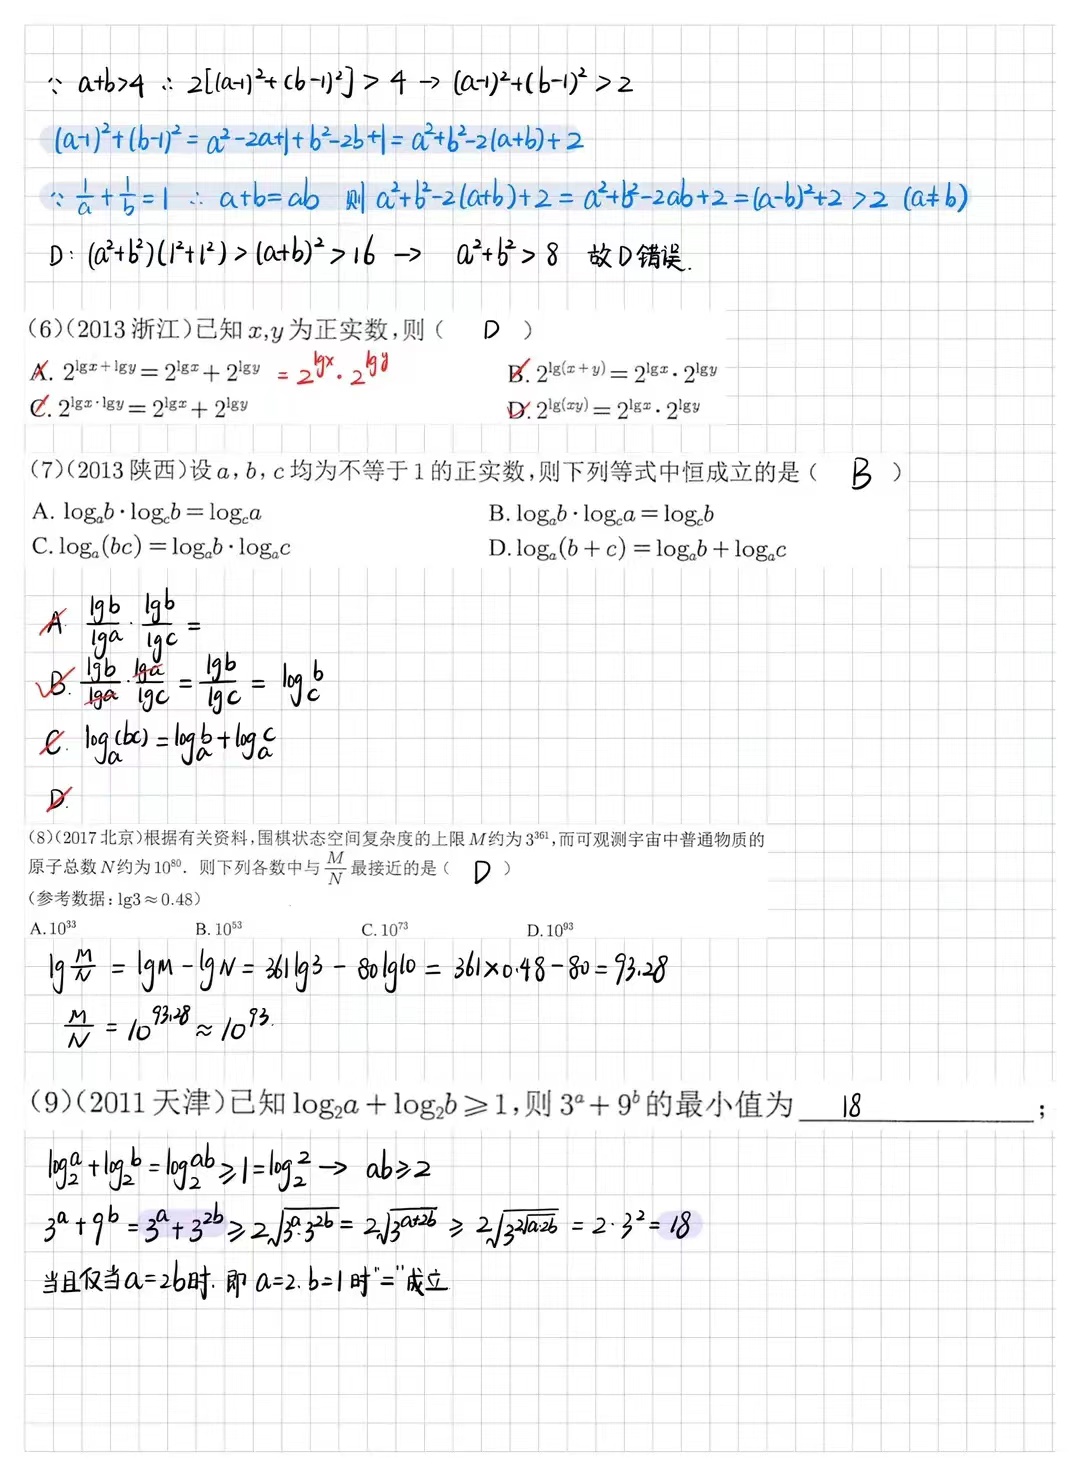 ∵ a+b>4 ∴ 2[(a-1)²+(b-1)²] > 4 → (a-1)²+(b-1)² > 2
(a-1)²+(b-1)² = a²-2a+1+b²-2b+1 = a²+b²-2(a+b)+2
∵ 1/a + 1/b = 1 ∴ a+b=ab 则 a²+b²-2(a+b)+2 = a²+b²-2ab+2 = (a-b)²+2 > 2 (a≠b)
D: (a²+b²)(1²+1²) > (a+b)² > 16 → a²+b² > 8 故D错误.
(6)(2013 浙江)已知 x,y 为正实数,则( D )
A. 2^{lgx+lgy} = 2^{lgx} + 2^{lgy} = 2^{lgx} · 2^{lgy} B. 2^{lg(x+y)} = 2^{lgx} · 2^{lgy}
C. 2^{lgx·lgy} = 2^{lgx} + 2^{lgy} D. 2^{lg(xy)} = 2^{lgx} · 2^{lgy}
(7)(2013 陕西)设 a, b, c 均为不等于 1 的正实数,则下列等式中恒成立的是( B )
A. logₐb · log_c b = log_c a B. logₐb · log_c a = log_c b
C. logₐ(bc) = logₐb · logₐc D. logₐ(b + c) = logₐb + logₐc
A lgb/lga · lgb/lgc =
B. lgb/lga · lga/lgc = lgb/lgc = log_c b
C. logₐ(bc) = logₐb + logₐc
D.
(8)(2017 北京)根据有关资料,围棋状态空间复杂度的上限 M 约为 3³⁶¹,而可观测宇宙中普通物质的
原子总数 N 约为 10⁸⁰. 则下列各数中与 M/N 最接近的是( D )
(参考数据: lg3≈0.48)
A. 10³³ B. 10⁵³ C. 10⁷³ D. 10⁹³
lg M/N = lgM - lgN = 361lg3 - 80lg10 = 361×0.48-80 = 93.28
M/N = 10^{93.28} ≈ 10⁹³.
(9)(2011 天津)已知 log₂a + log₂b ⩾ 1, 则 3ᵃ + 9ᵇ 的最小值为 18 ;
log₂a + log₂b = log₂ab ⩾ 1 = log₂2 → ab ⩾ 2
3ᵃ + 9ᵇ = 3ᵃ + 3²ᵇ ⩾ 2√(3ᵃ·3²ᵇ) = 2√(3ᵃ⁺²ᵇ) ⩾ 2√(3^{2√(a·2b)}) = 2·3² = 18
当且仅当 a=2b时. 即 a=2. b=1 时"="成立